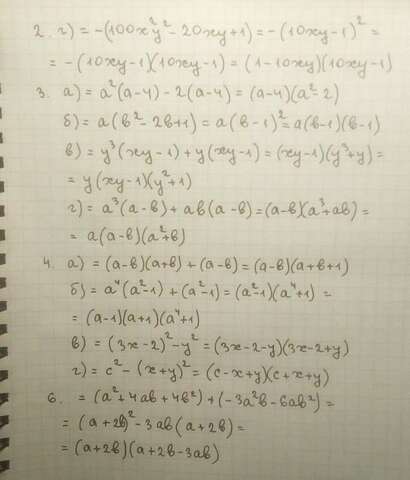 2. г) = -(100x²y² - 20xy + 1) = -(10xy - 1)² =
= -(10xy - 1)(10xy - 1) = (1 - 10xy)(10xy - 1)
3. а) = a²(a - 4) - 2(a - 4) = (a - 4)(a² - 2)
б) = a(b² - 2b + 1) = a(b - 1)² = a(b - 1)(b - 1)
в) = y³(xy - 1) + y(xy - 1) = (xy - 1)(y³ + y) =
= y(xy - 1)(y² + 1)
г) = a³(a - b) + ab(a - b) = (a - b)(a³ + ab) =
= a(a - b)(a² + b)
4. а) = (a - b)(a + b) + (a - b) = (a - b)(a + b + 1)
б) = a⁴(a² - 1) + (a² - 1) = (a² - 1)(a⁴ + 1) =
= (a - 1)(a + 1)(a⁴ + 1)
в) = (3x - 2)² - y² = (3x - 2 - y)(3x - 2 + y)
г) = c² - (x + y)² = (c - x + y)(c + x + y)
6. = (a² + 4ab + 4b²) + (-3a²b - 6ab²) =
= (a + 2b)² - 3ab(a + 2b) =
= (a + 2b)(a + 2b - 3ab)